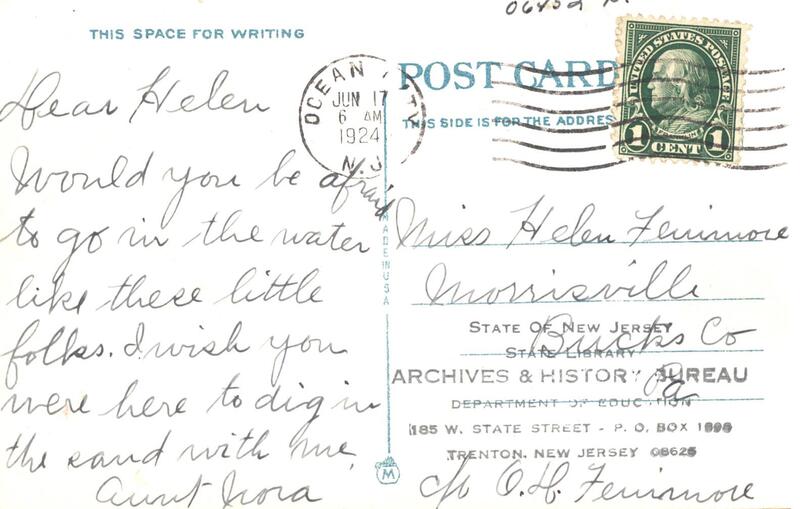 THIS SPACE FOR WRITING
Dear Helen
Would you be afraid
to go in the water
like these little
folks. I wish you
were here to dig in
the sand with me
Aunt Nora
OCEAN CITY
JUN 17
6 AM
1924
N.J
MADE IN USA
M
POST CARD
THIS SIDE IS FOR THE ADDRES
UNITED STATES POSTAGE
FRANKLIN
1 CENT 1
Miss Helen Fenimore
Morrisville
Bucks Co
Pa
c/o O.H. Fenimore
STATE OF NEW JERSEY
STATE LIBRARY
ARCHIVES & HISTORY BUREAU
DEPARTMENT OF EDUCATION
185 W. STATE STREET - P. O. BOX 1898
TRENTON, NEW JERSEY 08625